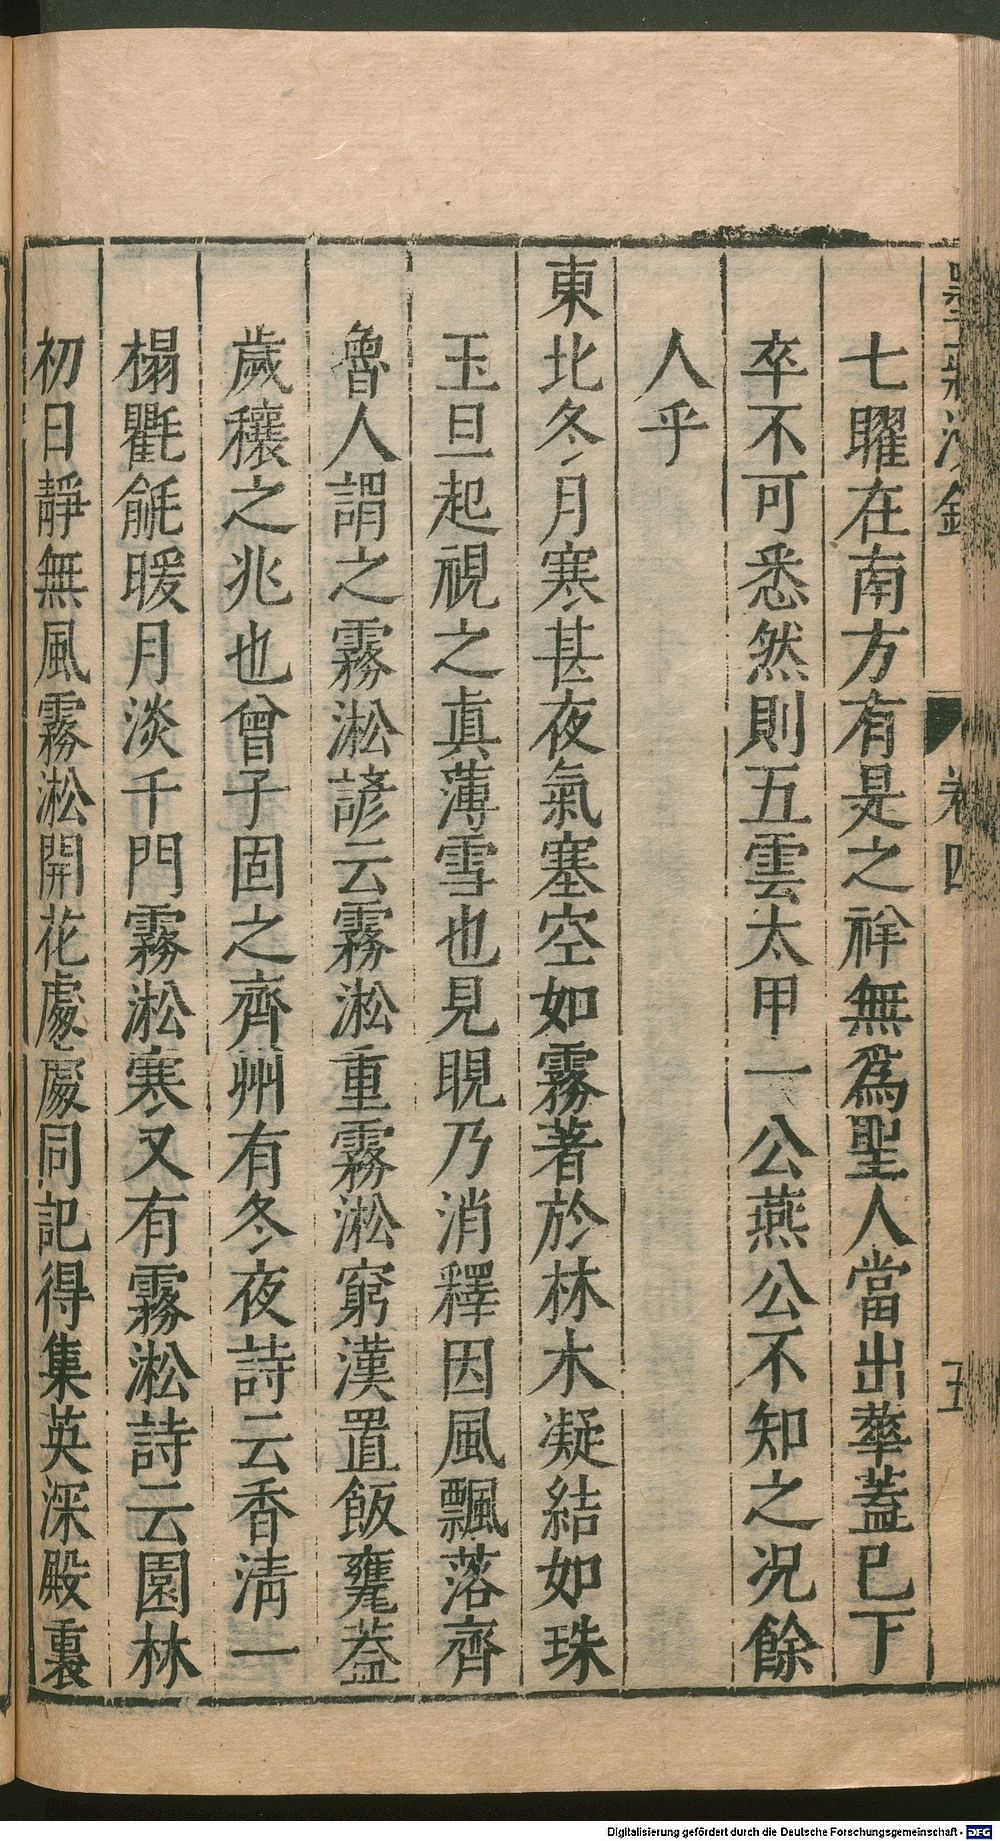 墨莊漫錄
卷四
五
七曜在南方有是之祥無爲聖人當出華蓋已下
卒不可悉然則五雲太甲一公燕公不知之况餘
人乎
東北冬月寒甚夜氣塞空如霧著於林木凝結如珠
玉旦起視之眞薄雪也見晛乃消釋因風飄落齊
魯人謂之霧淞諺云霧淞重霧淞窮漢置飯甕蓋
歲穰之兆也曾子固之齊州有冬夜詩云香清一
榻氍毹暖月淡千門霧淞寒又有霧淞詩云園林
初日靜無風霧淞開花處處同記得集英深殿裏
Digitalisierung gefördert durch die Deutsche Forschungsgemeinschaft - DFG